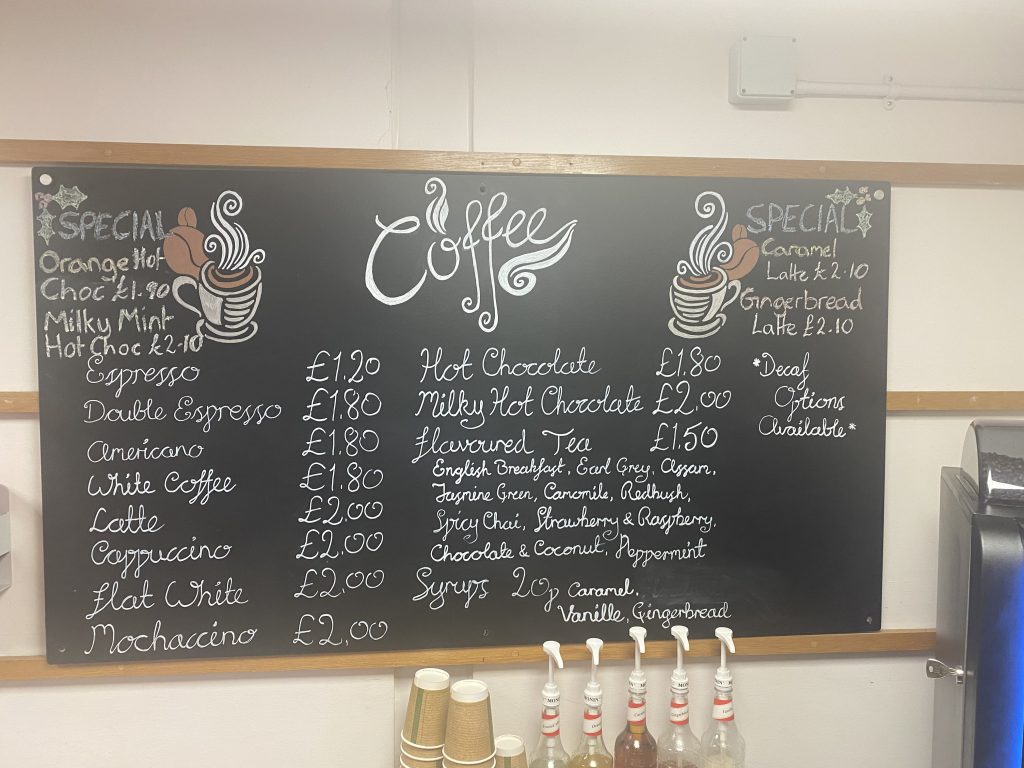 SPECIAL
Orange Hot
Choc £1.90
Milky Mint
Hot Choc £2.10
Coffee
SPECIAL
Caramel
Latte £2.10
Gingerbread
Latte £2.10
Espresso £1.20
Double Espresso £1.80
Americano £1.80
White Coffee £1.80
Latte £2.00
Cappuccino £2.00
Flat White £2.00
Mochaccino £2.00
Hot Chocolate £1.80
Milky Hot Chocolate £2.00
Flavoured Tea £1.50
English Breakfast, Earl Grey, Assam,
Jasmine Green, Camomile, Redbush,
Spicy Chai, Strawberry & Raspberry,
Chocolate & Coconut, Peppermint
Syrups 20p Caramel,
Vanille, Gingerbread
*Decaf
Options
Available*